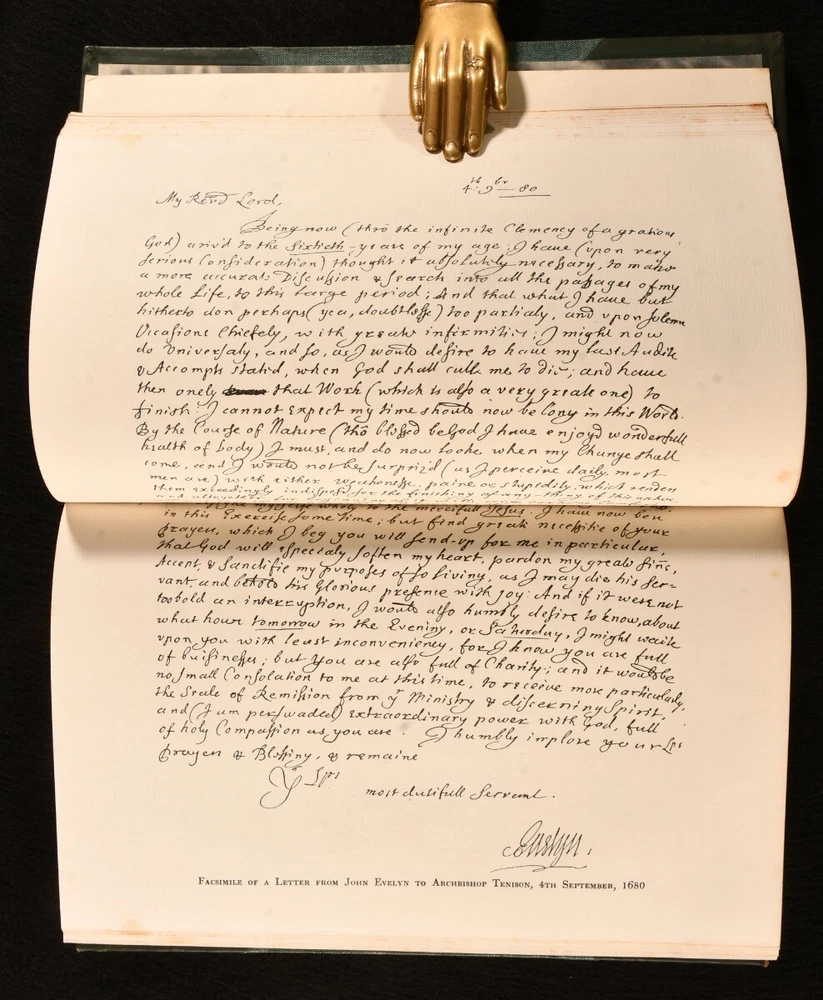 4th 9br — 80
My Revd Lord,
Being now (thrô the infinite Clemency of a gratious
God) ariv'd to the Sixtieth-yeare of my age; I have (upon very
serious Consideration) thought it absolutely necessary, to make
a more accurate Discussion & search into all the passages of my
whole Life, to this large period; And that what I have but
hitherto don perhaps (yea, doubtlesse) too partialy, and upon solemn
Occasions chiefely, with greate infirmities; I might now
do Universaly, and so, as I would desire to have my last Audite
& Accompts stated, when God shall calle me to die; and have
then onely that Work (which is also a very greate one) to
finish: I cannot expect my time should now be long in this World.
By the Course of Nature (thô blessed be God I have enjoyd wonderfull
health of body) I must, and do now looke when my Change shall
come, and I would not be surpriz'd (as I perceive daily, most
men are) with either weaknesse, paine or stupidity, which renders
them exceedingly indispos'd for the finishing of any thing of this nature,
wholy to the mercifull Jesus. I have now ben
in this Exercise some time; but find greate necessitie of your
Prayers, which I beg you will send-up for me in particular,
that God will especialy soften my heart, pardon my greate sins,
Accept & Sanctifie my purposes of so living, as I may die his Ser=
vant, and behold his Glorious presence with joy: And if it were not
too bold an interruption, I would also humbly desire to know, about
what hour tomorrow in the Evening, or Saturday, I might waite
upon you with least inconveniency, for I know you are full
of buisinesse; but you are also full of Charity; and it would be
no small Consolation to me at this time, to receive more particularly,
the Seale of Remission from yr Ministry & discerning Spirit,
and (I am perswaded) extraordinary power with God, full
of holy Compassion as you are. I humbly implore your Lps
Prayers & Blessing, & remaine
Yr Lps
most dutifull servant.
JEvelyn.
Facsimile of a Letter from John Evelyn to Archbishop Tenison, 4th September, 1680